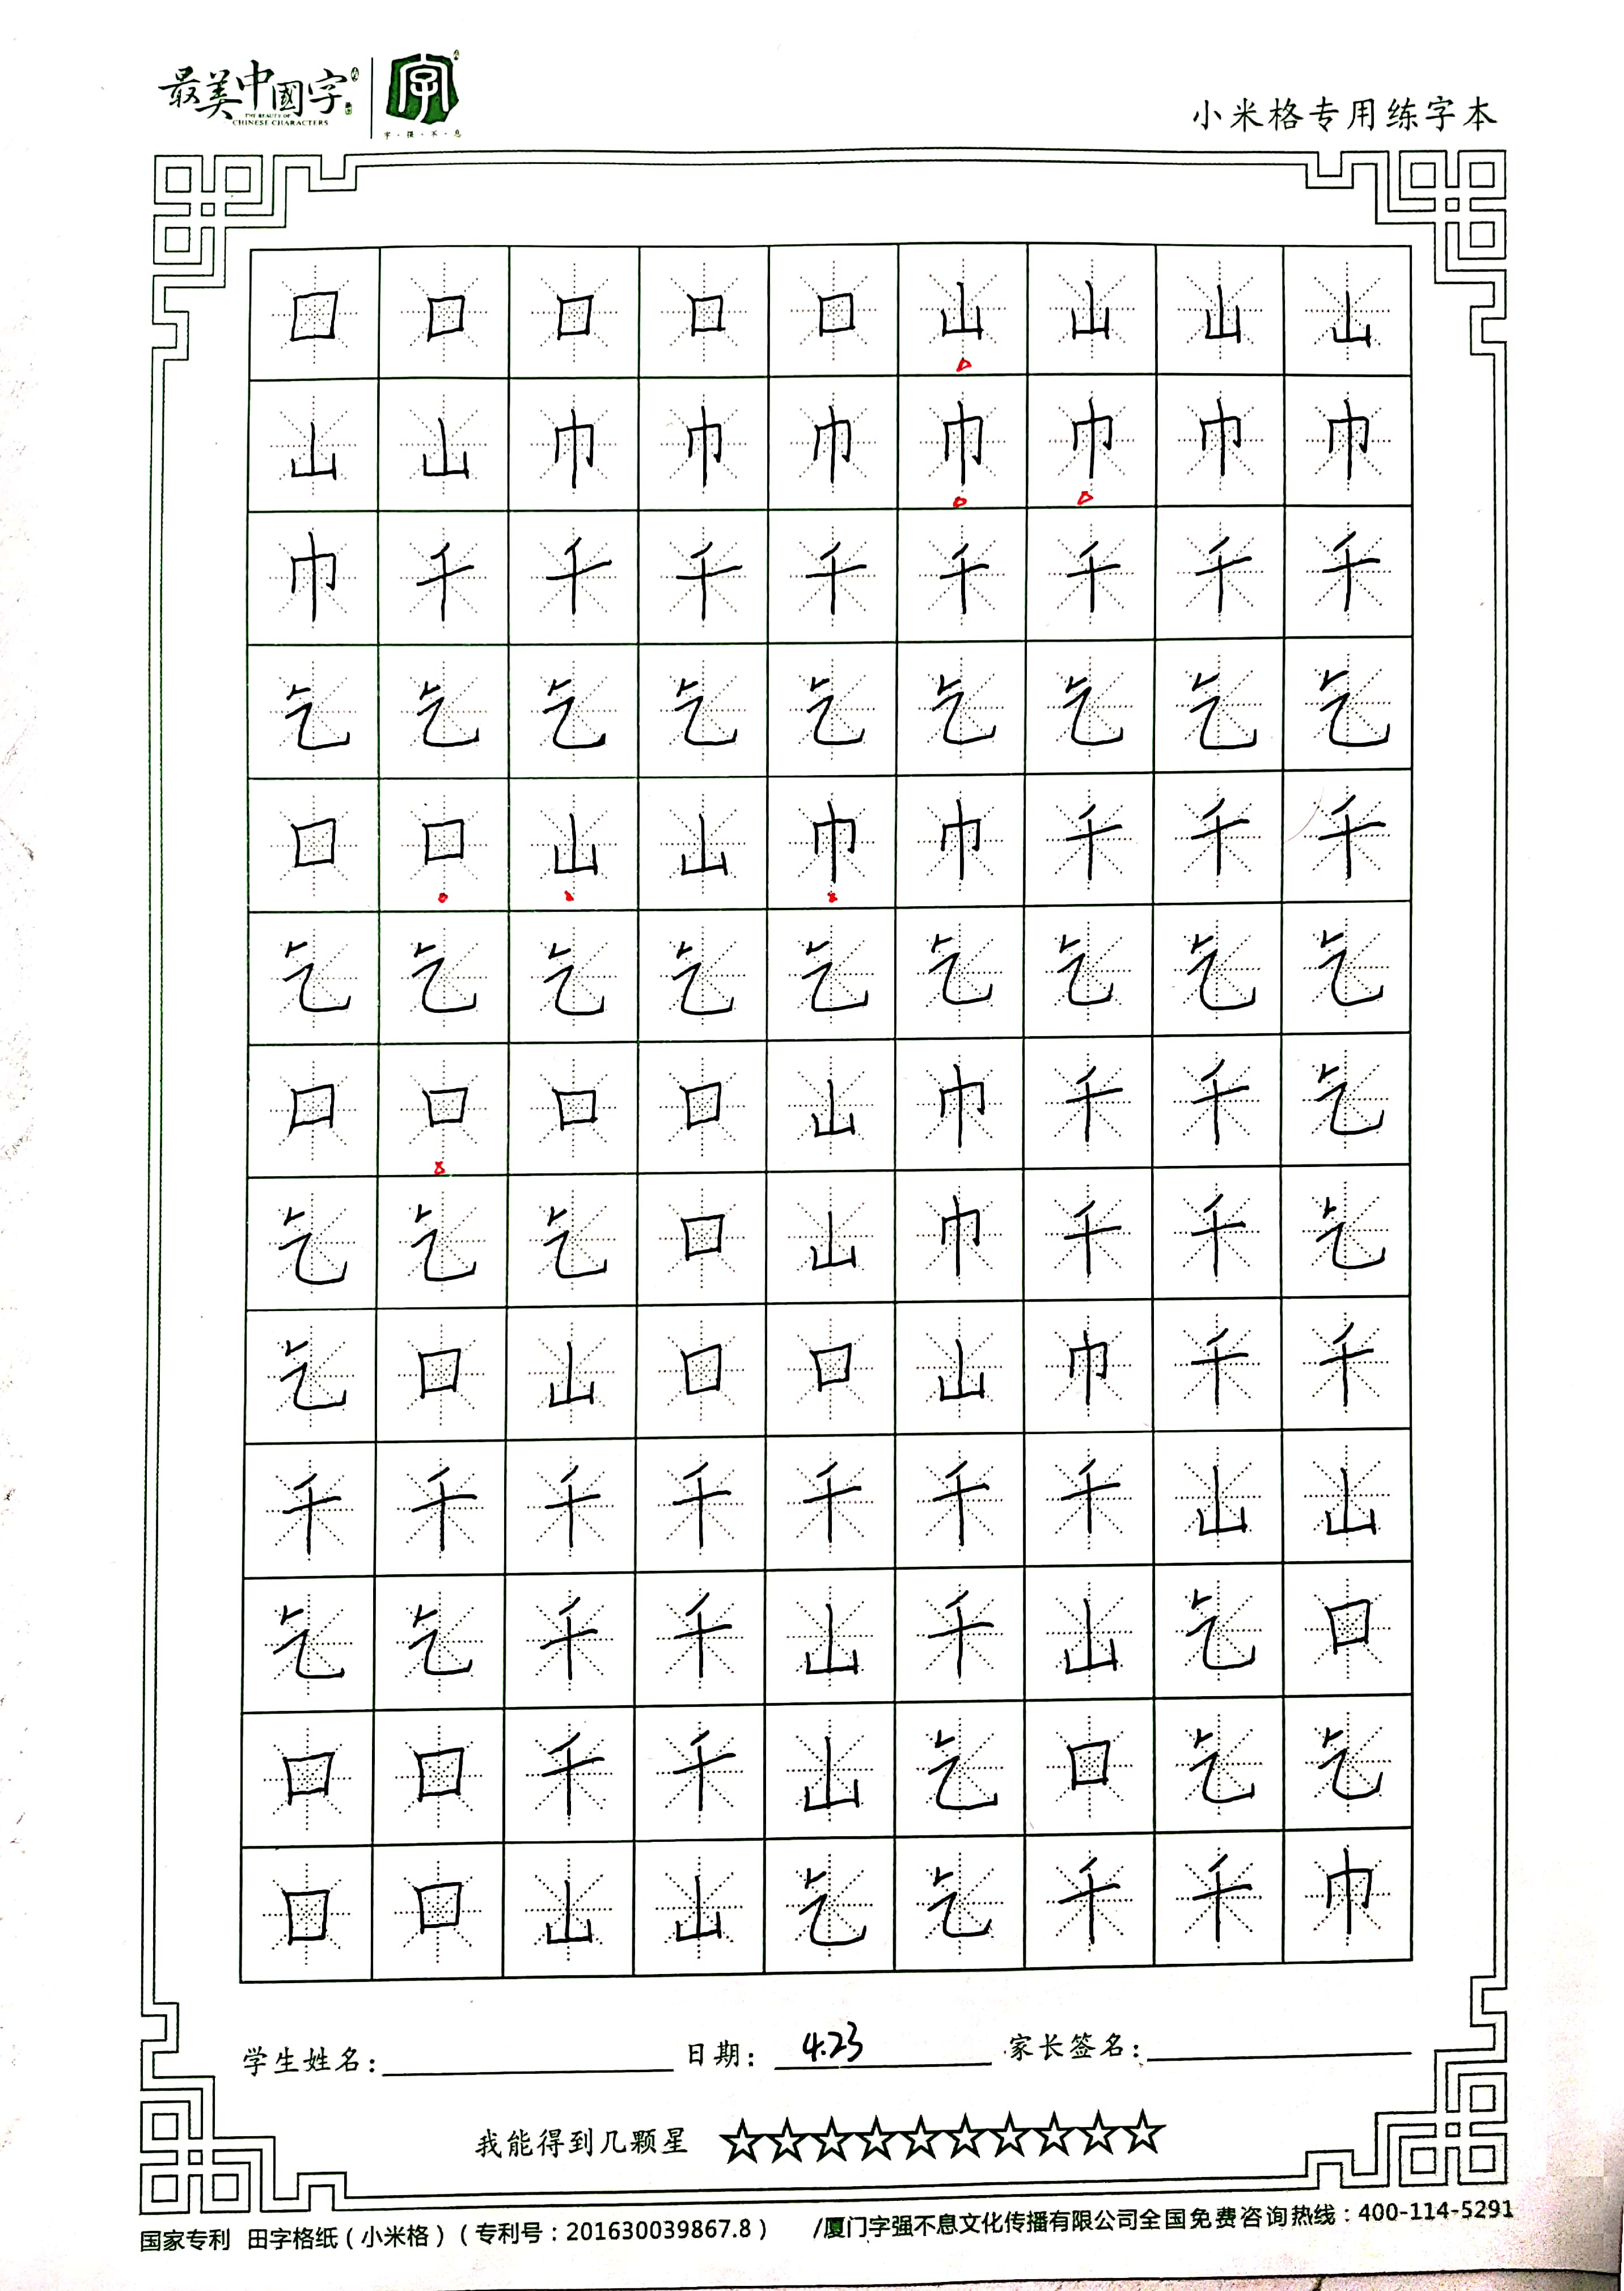 最美中國字
THE BEAUTY OF
CHINESE CHARACTERS
字
字·强·不·息
小米格专用练字本
口口口口口山山山山
山山巾巾巾巾巾巾巾
巾千千千千千千千千
乞乞乞乞乞乞乞乞乞
口口山山巾巾千千千
乞乞乞乞乞乞乞乞乞
口口口口山巾千千乞
乞乞乞口山巾千千乞
乞口山口口山巾千千
千千千千千千千山山
乞乞千千山千山乞口
口口千千山乞口乞乞
口口山山乞乞千千巾
学生姓名: 日期: 4.23 家长签名:
我能得到几颗星 ☆☆☆☆☆☆☆☆☆☆
国家专利 田字格纸(小米格)(专利号:201630039867.8) /厦门字强不息文化传播有限公司全国免费咨询热线:400-114-5291